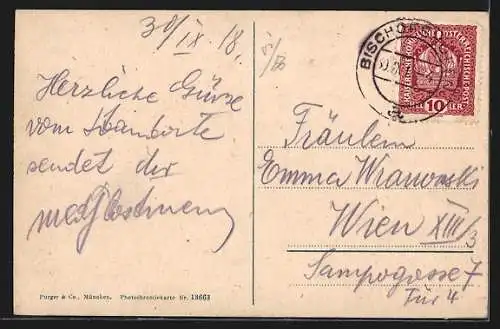 30/IX. 18.
Herzliche Grüsse
vom Standorte
sendet dir
BISCHO
KAISERLICHE KÖNIGLICHE ÖSTERREICHISCHE POST
10 HELLER
Fräulein
Emma Wranowski
Wien XIII/3
Sampogasse 7
Tür 4
Purger & Co., München. Photochromiekarte Nr. 13663